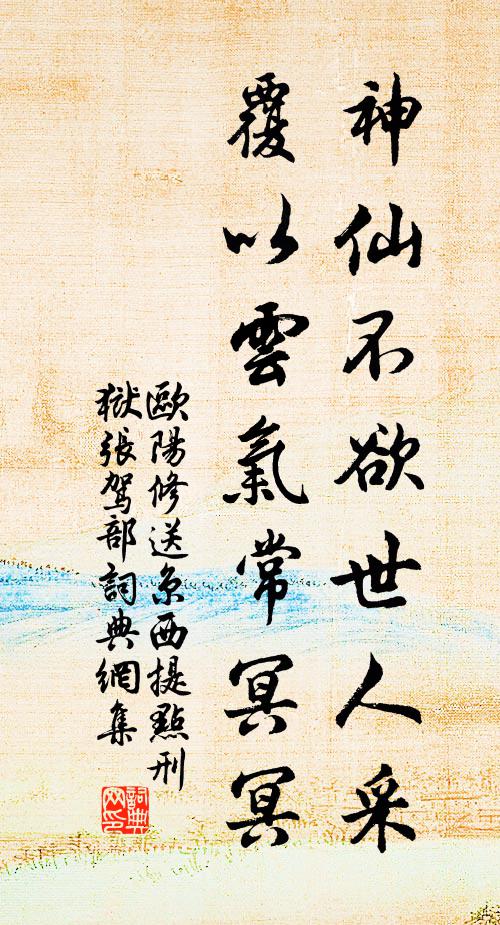 神仙不欲世人采
覆以雲氣常冥冥
歐陽修送京西提點刑
獄張駕部詞典網集
詞典
网印